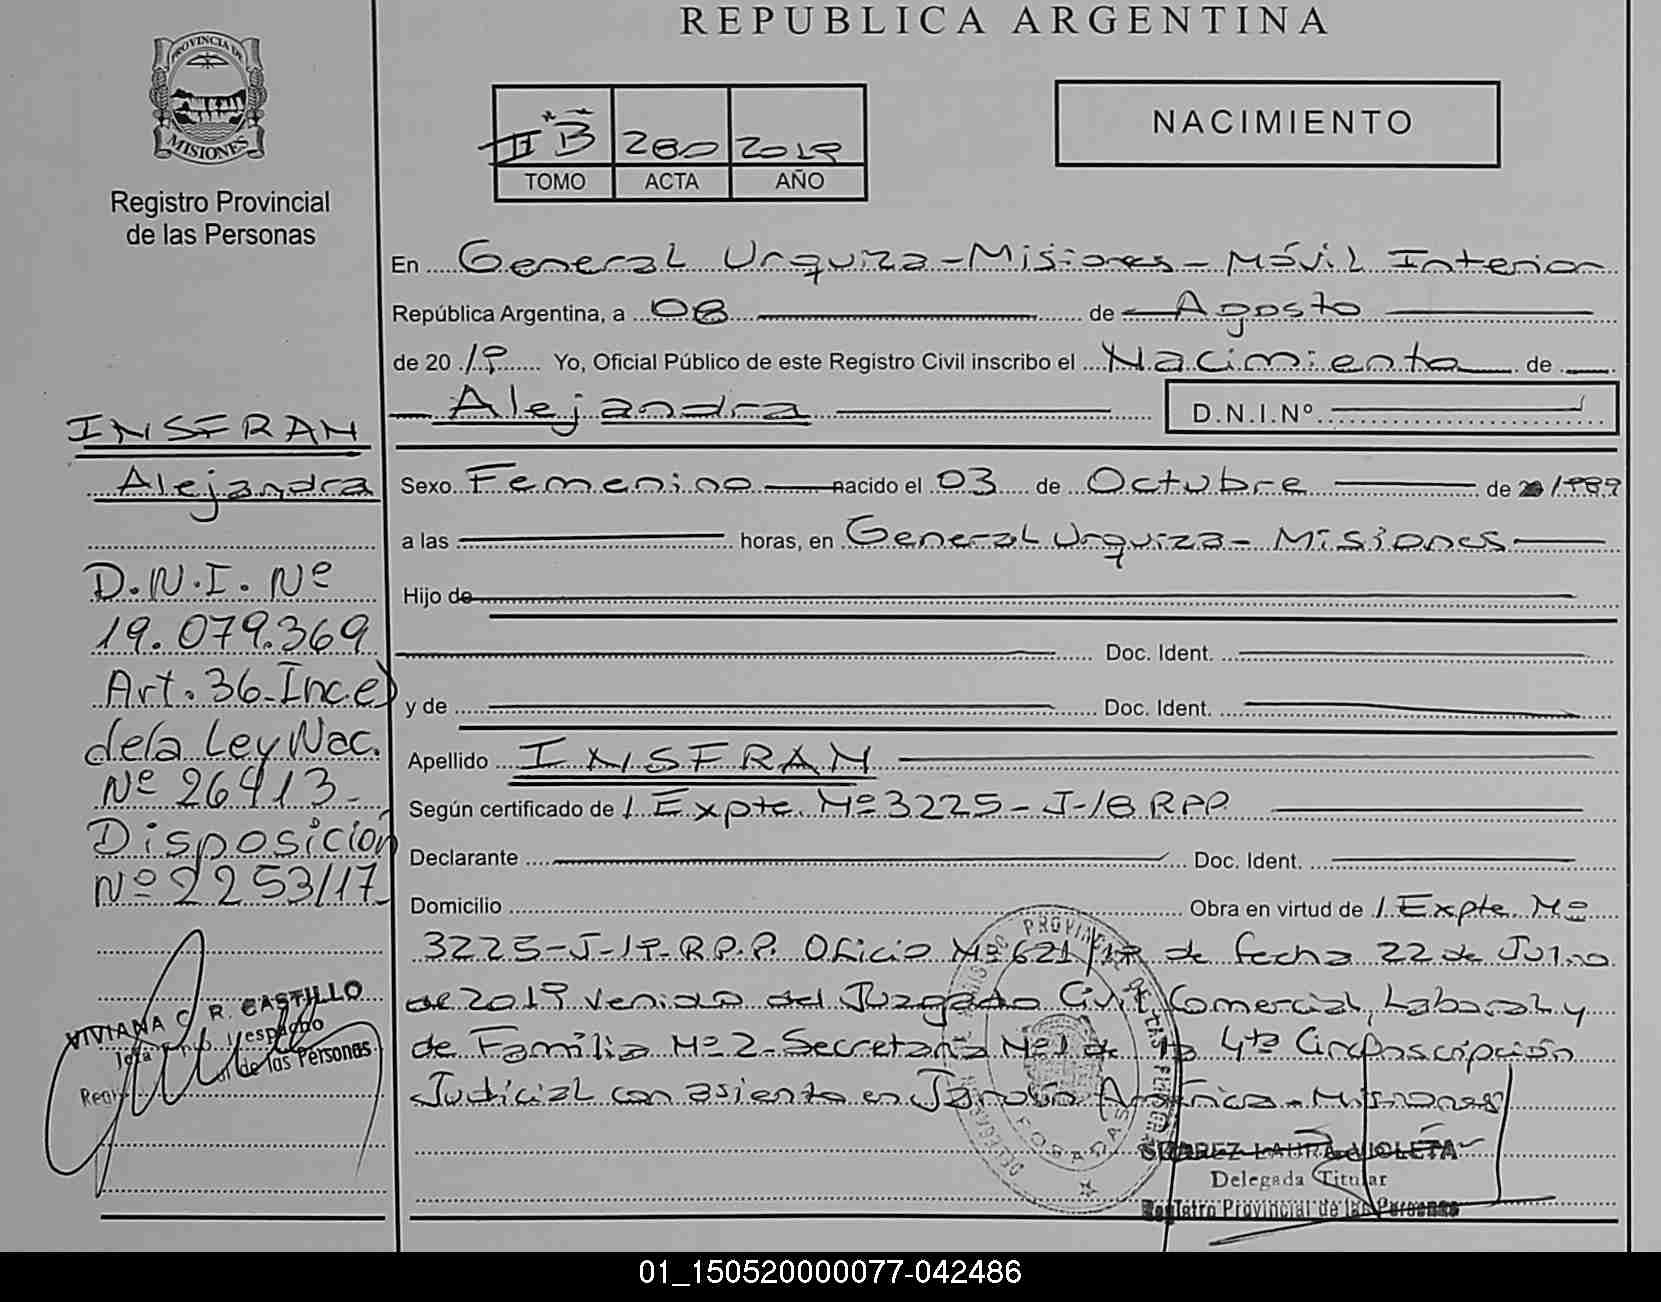 REPUBLICA ARGENTINA
PROVINCIA DE
MISIONES
Registro Provincial
de las Personas
II "B" 280 2019
TOMO ACTA AÑO
NACIMIENTO
En General Urquiza - Misiones - Móvil Interior
República Argentina, a 08 de Agosto
de 20 19 Yo, Oficial Público de este Registro Civil inscribo el Nacimiento de
Alejandra D.N.I.Nº
INSFRAN
Alejandra
D.N.I. Nº
19.079.369
Art. 36-Inc.e)
de la Ley Nac.
Nº 26413-
Disposición
Nº 2253/17
VIVIANA C. R. CASTILLO
de las Personas
Sexo Femenino nacido el 03 de Octubre de 1989
a las horas, en General Urquiza - Misiones
Hijo de
Doc. Ident.
y de Doc. Ident.
Apellido INSFRAN
Según certificado de / Expte. Nº 3225-J-18 RPP
Declarante Doc. Ident.
Domicilio Obra en virtud de / Expte. Nº
3225-J-19-R.P.P. Oficio Nº 621/19 de fecha 22 de Julio
de 2019 venido del Juzgado Civil Comercial, Laboral y
de Familia Nº 2-Secretaría Nº 1 de la 4ta Circunscripción
Judicial con asiento en Jardín América - Misiones
SUAREZ LAURA VIOLETA
Delegada Titular
Registro Provincial de las Personas
POSADAS
01_150520000077-042486